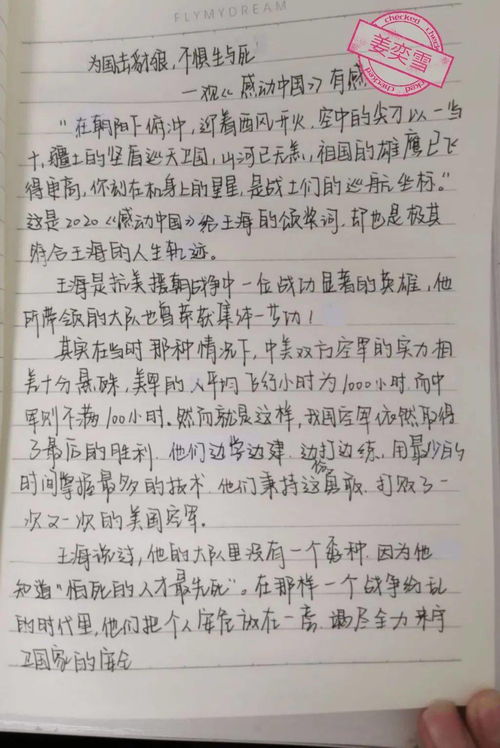 FLYMYDREAM
checked checked
姜奕雪
checked
为国击豺狼，不惧生与死
——观《感动中国》有感
“在朝阳下俯冲，迎着西风开火，空中的尖刀以一当
十，疆土的坚盾巡天卫国，山河已无恙，祖国的雄鹰已飞
得更高，你刻在机身上的星星，是战士们的巡航坐标。”
这是2020《感动中国》给王海的颁奖词，却也是极其
符合王海的人生轨迹。
王海是抗美援朝战争中一位战功显著的英雄，他
所带领的大队也曾荣获集体一等功！
其实在当时那种情况下，中美双方空军的实力相
差十分悬殊，美军的人平均飞行小时为1000小时，而中
军则不满100小时。然而就是这样，我国空军依然取得
了最后的胜利，他们边学边建，边打边练，用最少的
时间掌握最多的技术，他们秉持这份勇敢，打败了一
次又一次的美国空军。
王海说过，他的大队里没有一个孬种，因为他
知道“怕死的人才最先死”。在那样一个战争纷乱
的时代里，他们把个人安危放在一旁，竭尽全力来守
卫国家的安全